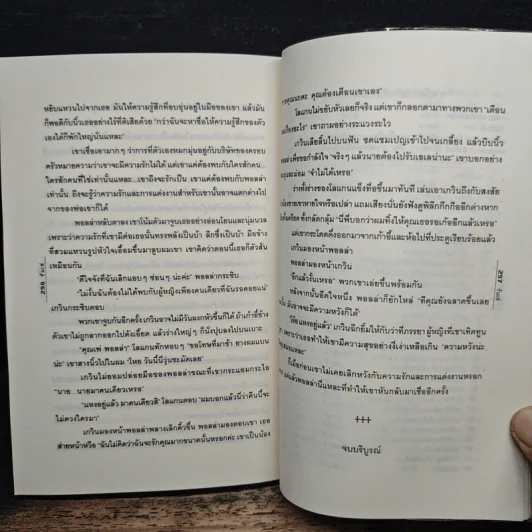 หยิบแหวนไปจากเธอ มันให้ความรู้สึกที่อบอุ่นอยู่ในมือของเขา แล้วมัน
ก็พอดีกับนิ้วเธออย่างไร้ที่ติเสียด้วย "กว่าฉันจะหาชื่อให้ความรู้สึกของตัว
เองได้ก็พักใหญ่นั่นแหละ"
เขาเชื่อเอามากๆ ว่าการที่ตัวเองหมกมุ่นอยู่กับบริษัทของครอบ
ครัวหมายความว่าเขาจะมีความรักไม่ได้ แต่เขาแค่ต้องพบกับใครสักคน...
ใครสักคนที่ใช่เท่านั้นแหละ...เขาถึงจะรักเป็น เขาแค่ต้องพบกับพอลล่า
เท่านั้น ถึงจะรู้ว่าความรักและการแต่งงานสำหรับเขานั้นอาจแตกต่างไป
จากของพ่อเขาก็ได้
พอลล่าหลับตาลง เขาโน้มตัวมาจูบเธออย่างอ่อนโยนและนุ่มนวล
เพราะว่าความรักที่เขามีต่อเธอนั้นทรงพลังเป็นบ้า ลึกซึ้งเป็นบ้า มือข้าง
ที่สวมแหวนรูปหัวใจเอื้อมขึ้นมาลูบผมเขา เขาคิดว่าตอนนี้เธอก็ตัวสั่น
เหมือนกัน
"ดีใจจังที่ฉันเลิกแอบๆ ซ่อนๆ น่ะค่ะ" พอลล่ากระซิบ
"ไม่งั้นฉันคงไม่ได้พบกับผู้หญิงเพียงคนเดียวที่ฉันรอคอยแน่"
เกวินกระซิบตอบ
พวกเขาจูบกันอีกครั้ง เกวินอาจไม่มีวันผงกหัวขึ้นก็ได้ ถ้าเก้าอี้ข้าง
ตัวเขาไม่ถูกลากออกไปดังเอี๊ยด แล้วร่างใหญ่ๆ ก็นั่งปุลงไปบนเบาะ
"คุณเฟ่ พอลล่า" โลแกนทักหอบๆ "ขอโทษที่มาช้า ยางผมแบนน่ะ
น่ะ" เขาสางนิ้วไปในผม "โหย วันนี้นี่วุ่นชะมัดเลย"
เกวินไม่ยอมปล่อยมือของพอลล่าขณะที่เขากระแอมกระไอ
"นาย...นายมาคนเดียวเหรอ"
"แหงอยู่แล้ว มาคนเดียวสิ" โลแกนตอบ "ผมบอกแล้วนี่ว่าคืนนี้จะ
ไม่ควงใครมา"
เกวินมองหน้าพอลล่าพลางเลิกคิ้วขึ้น พอลล่ามองตอบเขา เธอ
ส่ายหน้าหวือ "ฉันไม่คิดว่าฉันจะรักคุณมากขนาดนั้นหรอกค่ะ เขาเป็นน้อง
256
ชายคุณนะคะ คุณต้องเตือนเขาเอง"
โลแกนไม่ขยับหัวเลยก็จริง แต่เขาก็กลอกตามาทางพวกเขา "เตือน
เรื่องอะไร" เขาถามอย่างระแวงระไว
เกวินเลียลิ้นไปบนฟัน ซดแชมเปญเข้าไปจนเกลี้ยง แล้วบีบนิ้ว
พอลล่าเพื่อขอกำลังใจ "จริงๆ แล้วนายต้องไปรับเอเลน่านะ" เขาบอกอย่าง
ระมัดระวัง "จำไม่ได้เหรอ"
ร่างทั้งร่างของโลแกนแข็งทื่อขึ้นมาทันที เล่นเอาเกวินถึงกับสงสัย
ว่าน้องชายเขาหายใจหรือเปล่า แถมเสียงนั่นยังฟังดูพิลึกกึกกืออีกต่างหาก
ทั้งเครียด ทั้งกลัดกลุ้ม "นี่พี่บอกว่าผมทิ้งให้คุณเธอรอเก้ออีกแล้วเหรอ"
แต่เขากระโดดดึ๋งออกมาจากเก้าอี้และห้อไปที่ประตูเรียบร้อยแล้ว
เกวินมองหน้าพอลล่า
พอลล่ามองหน้าเกวิน
"อีกแล้วงั้นเหรอ" พวกเขาเอ่ยขึ้นพร้อมกัน
หลังจากนั้นอึดใจหนึ่ง พอลล่าก็ยักไหล่ "ทีคุณยังฉลาดขึ้นเลย
นั่น มันอาจจะมีความหวังก็ได้"
"โอ๊ย แหงอยู่แล้ว" เกวินฉีกยิ้มให้กับว่าที่ภรรยา ผู้หญิงที่เขาเทิดทูน
บูชา เพราะว่าเธอทำให้เขามีความสุขอย่างงี่เง่าเหลือเกิน "ความหวังน่ะ
มีเสมอแหละ"
ก็เมื่อก่อนเขาไม่เคยเลิกหวังกับความรักและการแต่งงานหรอก
แต่แล้วพอลล่านี่แหละที่ทำให้เขาหันกลับมาเชื่ออีกครั้ง
+++
จบบริบูรณ์
257